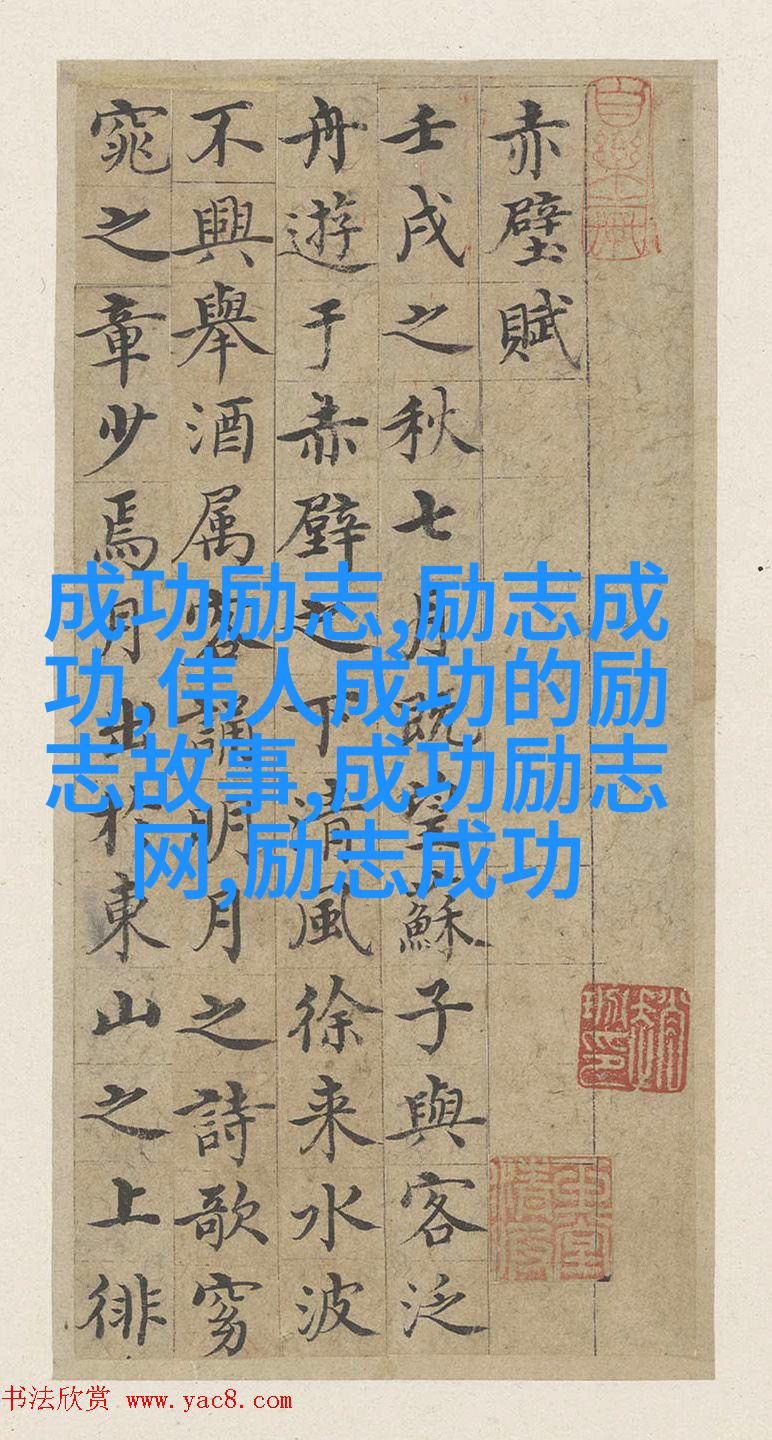 赤壁賦
壬戌之秋七月既望蘇子與客泛
舟遊于赤壁之下清風徐来水波
不興舉酒属客誦明月之詩歌窈
窕之章少焉月出於東山之上徘
成功励志,励志成
功,伟人成功的励
志故事,成功励志
网,励志成功
书法欣赏 www.yac8.com